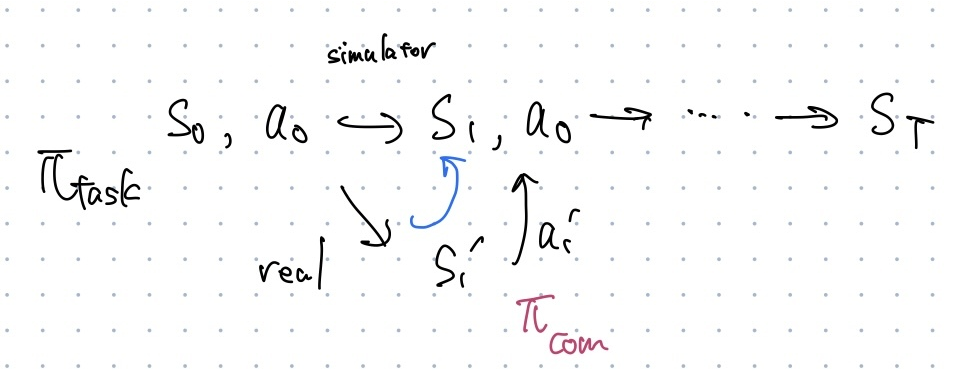 simulator
S₀, a₀ → S₁, a₀ → ... → S_T
π_task
real S₁′ a₁′
π_com